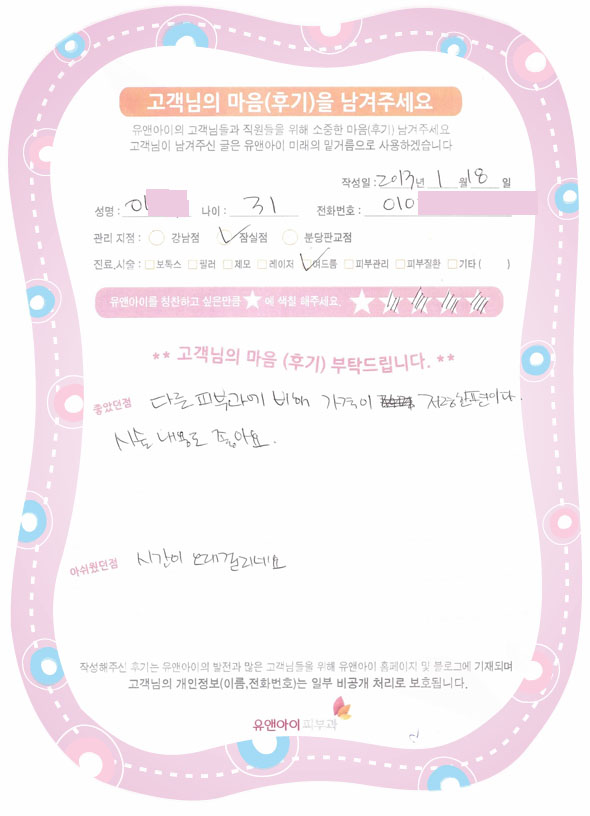 고객님의 마음(후기)을 남겨주세요
유앤아이의 고객님들과 직원들을 위해 소중한 마음(후기) 남겨주세요
고객님이 남겨주신 글은 유앤아이 미래의 밑거름으로 사용하겠습니다
작성일 : 2013년 1월 18일
성명 : 이 나이 : 31 전화번호 : 010
관리 지점 : 강남점 잠실점 분당판교점
진료,시술 : 보톡스 필러 제모 레이저 여드름 피부관리 피부질환 기타 ( )
유앤아이를 칭찬하고 싶은만큼 ★ 에 색칠 해주세요. ★ ★ ★ ★ ★
** 고객님의 마음 (후기) 부탁드립니다. **
좋았던점 다른 피부과에 비해 가격이 저렴한편이다.
시술 내용도 좋아요.
아쉬웠던점 시간이 오래걸리네요
작성해주신 후기는 유앤아이의 발전과 많은 고객님들을 위해 유앤아이 홈페이지 및 블로그에 기재되며
고객님의 개인정보(이름,전화번호)는 일부 비공개 처리로 보호됩니다.
유앤아이피부과